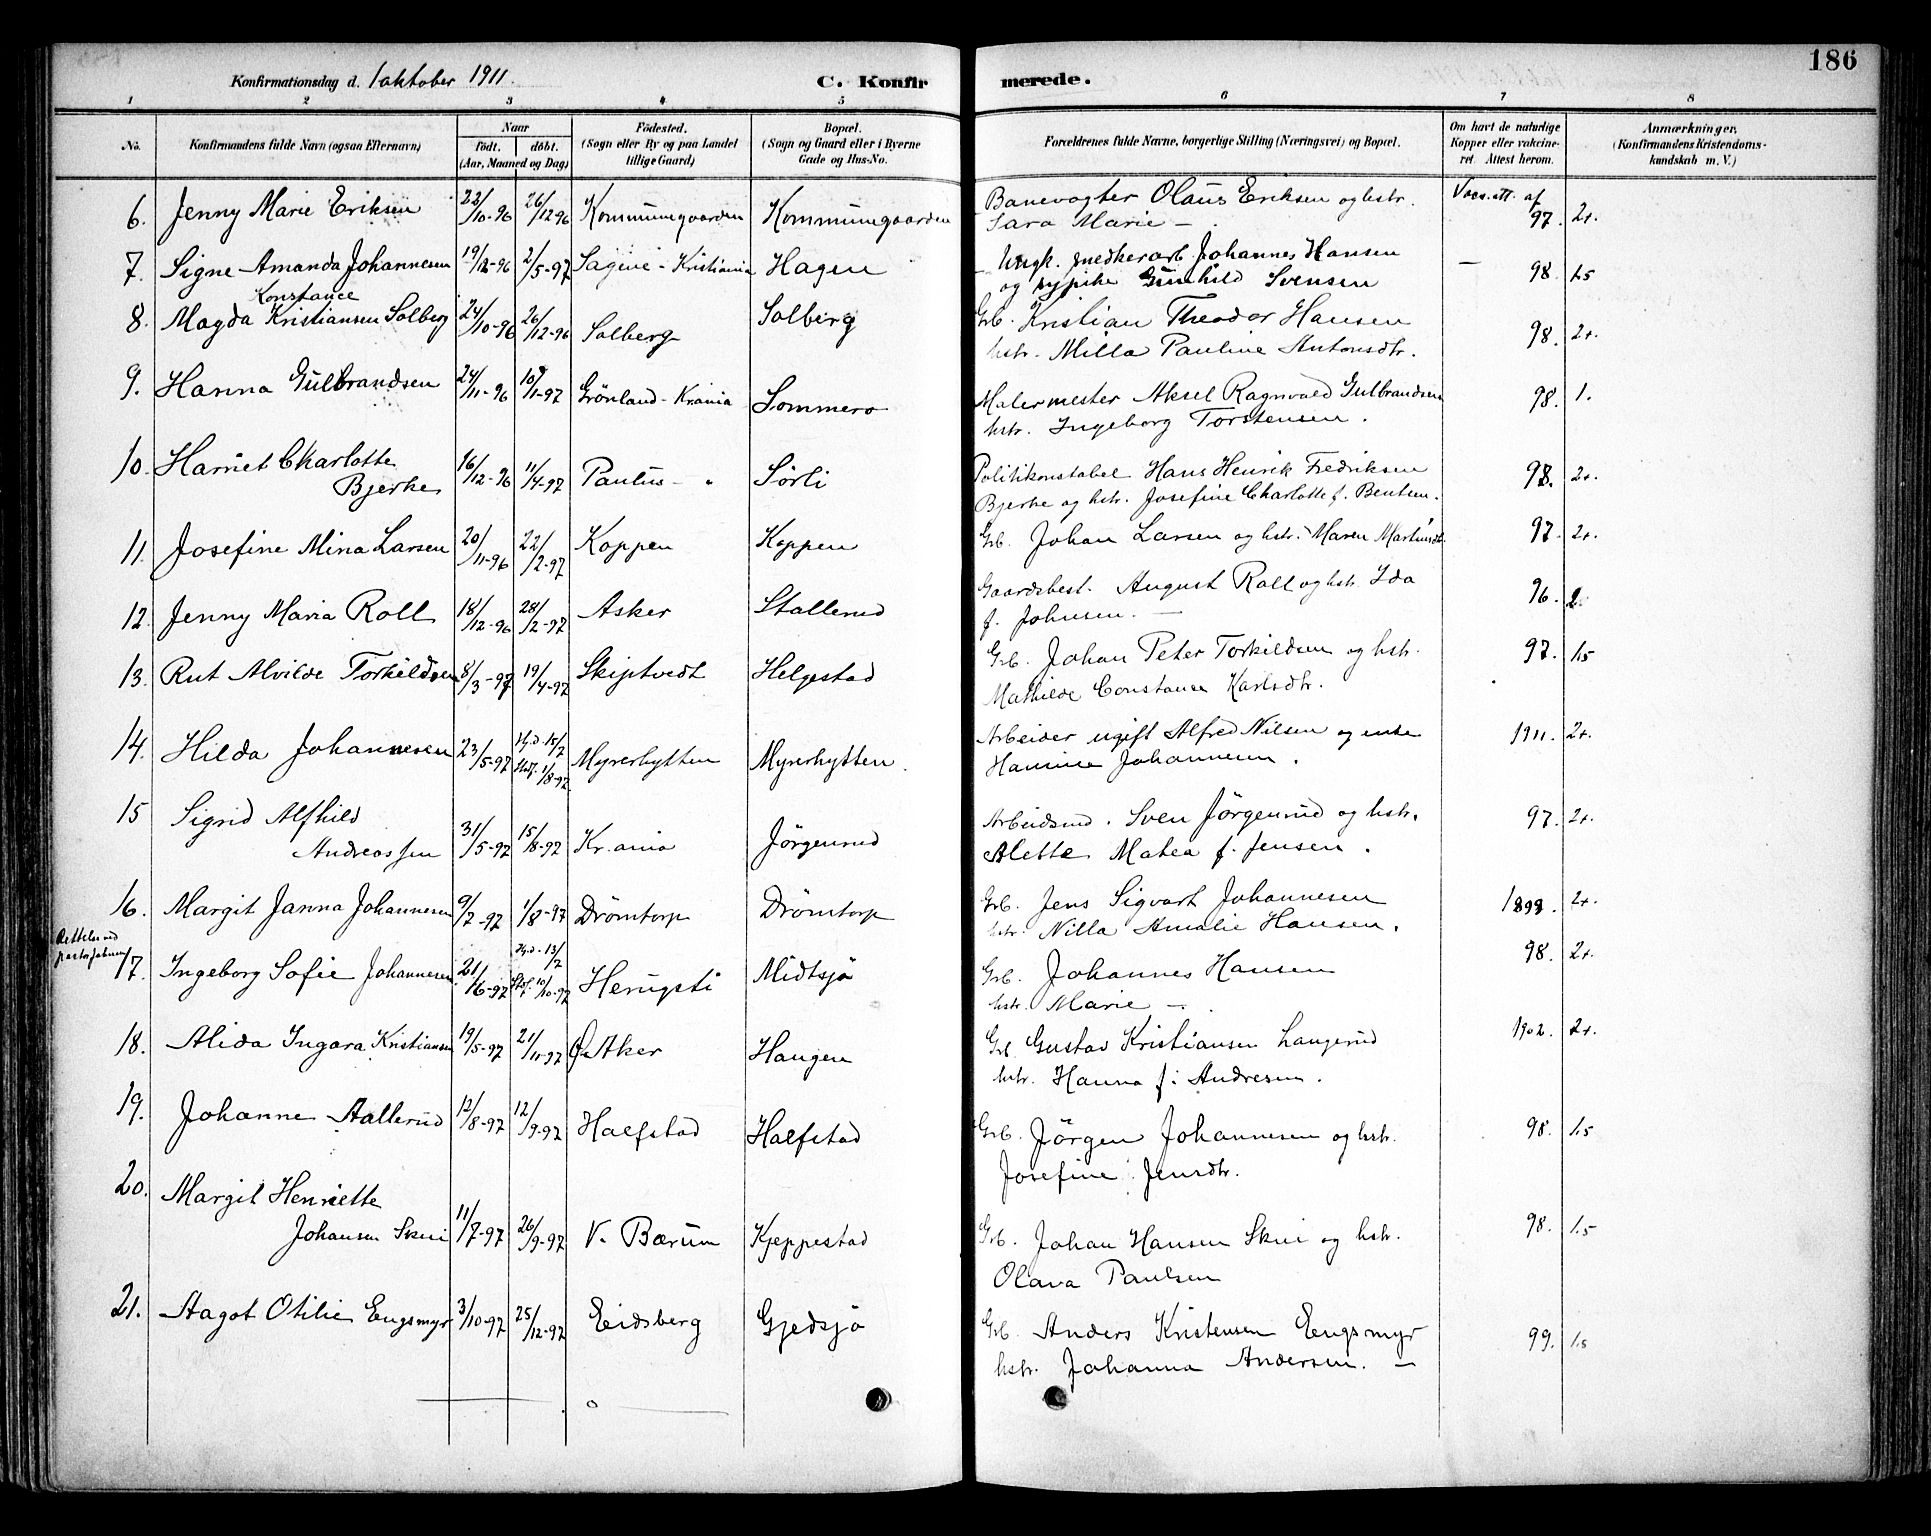 186
Konfirmationsdag d. 1 oktober 1911. C. Konfirmerede.
1 2 3 4 5 6 7 8
No. Konfirmandens fulde Navn (ogsaa Efternavn) Naar födt. döbt. (Aar, Maaned og Dag) Födested. (Sogn eller By og paa Landet tillige Gaard) Bopæl. (Sogn og Gaard eller i Byerne Gade og Hus-No. Forældrenes fulde Navne, borgerlige Stilling (Næringsvei) og Bopæl. Om havt de naturlige Kopper eller vakcineret. Attest herom. Anmærkninger. (Konfirmandens Kristendomskundskab m. V.)
6. Jenny Marie Eriksen 22/10-96 26/12-96 Kommunegaarden Kommunegaarden Banevogter Olaus Eriksen og hstr. Vacc. att. af
Sara Marie — 97. 2+.
7. Signe Amanda Johannesen 19/12-96 2/5-97 Sagene - Kristiania Hagen Ungk. snedkerarb. Johannes Hansen —
og sypike Gunhild Svensen 98. 1.5
8. Magda Konstance Kristiansen Solberg 24/10-96 26/12-96 Solberg Solberg Grb. Kristian Theodor Hansen
hstr. Milla Pauline Antonsdtr. 98. 2+.
9. Hanna Gulbrandsen 24/11-96 10/11-97 Grönland - Kr.ania Sommero Malermester Aksel Ragnvald Gulbrandsen 98. 1.
hstr. Ingeborg Torstensen.
10. Harriet Charlotte
Bjerke 16/12-96 11/4-97 Paulus - " Sörli Politikonstabel Hans Henrik Fredriksen 98. 2+.
Bjerke og hstr. Josefine Charlotte f. Bentsen.
11. Josefine Mina Larsen 20/11-96 22/2-97 Koppen Koppen Grb. Johan Larsen og hstr. Maren Martinsdtr. 97. 2+.
12. Jenny Maria Roll 18/12-96 28/2-97 Asker Stallerud Gaardsbest. August Roll og hstr. Ida 96. 2
f. Johnsen. —
13. Rut Alvilde Torkildsen 8/3-97 19/4-97 Skiptvedt Helgestad Grb. Johan Peter Torkildsen og hstr. 97. 1.5
Mathilde Constance Karlsdtr.
14. Hilda Johannesen 23/5-97 Hjd. 15/7 Stadf. 1/8-97 Myrerhytten Myrerhytten. Arbeider ugift Alfred Nilsen og enke 1911. 2+.
Hannine Johannesen.
15 Sigrid Alfhild
Andreassen 31/5-97 15/8-97 Kr.ania Jörgenrud Arbeidsmd. Sven Jörgenrud og hstr. 97. 2+.
Alette Matea f. Jensen.
16. Margit Janna Johannesen 9/7-97 1/8-97 Drömtorp Drömtorp Grb. Jens Sigvart Johannesen 1898. 2+.
hstr. Nilla Amalie Hansen.
17. Ingeborg Sofie Johannesen 21/6-97 Hjd. 13/7 Stadf. 10/10-97 Midtsjö Grb. Johannes Hansen 98. 2+.
hstr. Marie — .
18. Alida Ingara Kristiansen 19/5-97 21/11-97 Ö. Aker Haugen Grb. Gustav Kristiansen Langerud 1902. 2+.
hstr. Hanna f. Andresen.
19. Johanne Aallerud 12/8-97 12/9-97 Halfstad Halfstad Grb. Jörgen Johannesen og hstr. 98. 1.5
Josefine Jensdtr.
20. Margit Henriette
Johansen Skui 11/7-97 26/9-97 V. Bærum Kjeppestad Grb. Johan Hansen Skui og hstr. 98. 1.5
Olava Paulsen
21. Aagot Otilie Engsmyr 3/10-97 25/12-97 Eidsberg Gjedsjö Grb. Anders Kristensen Engsmyr 99. 1.5
hstr. Johanna Andersen. —